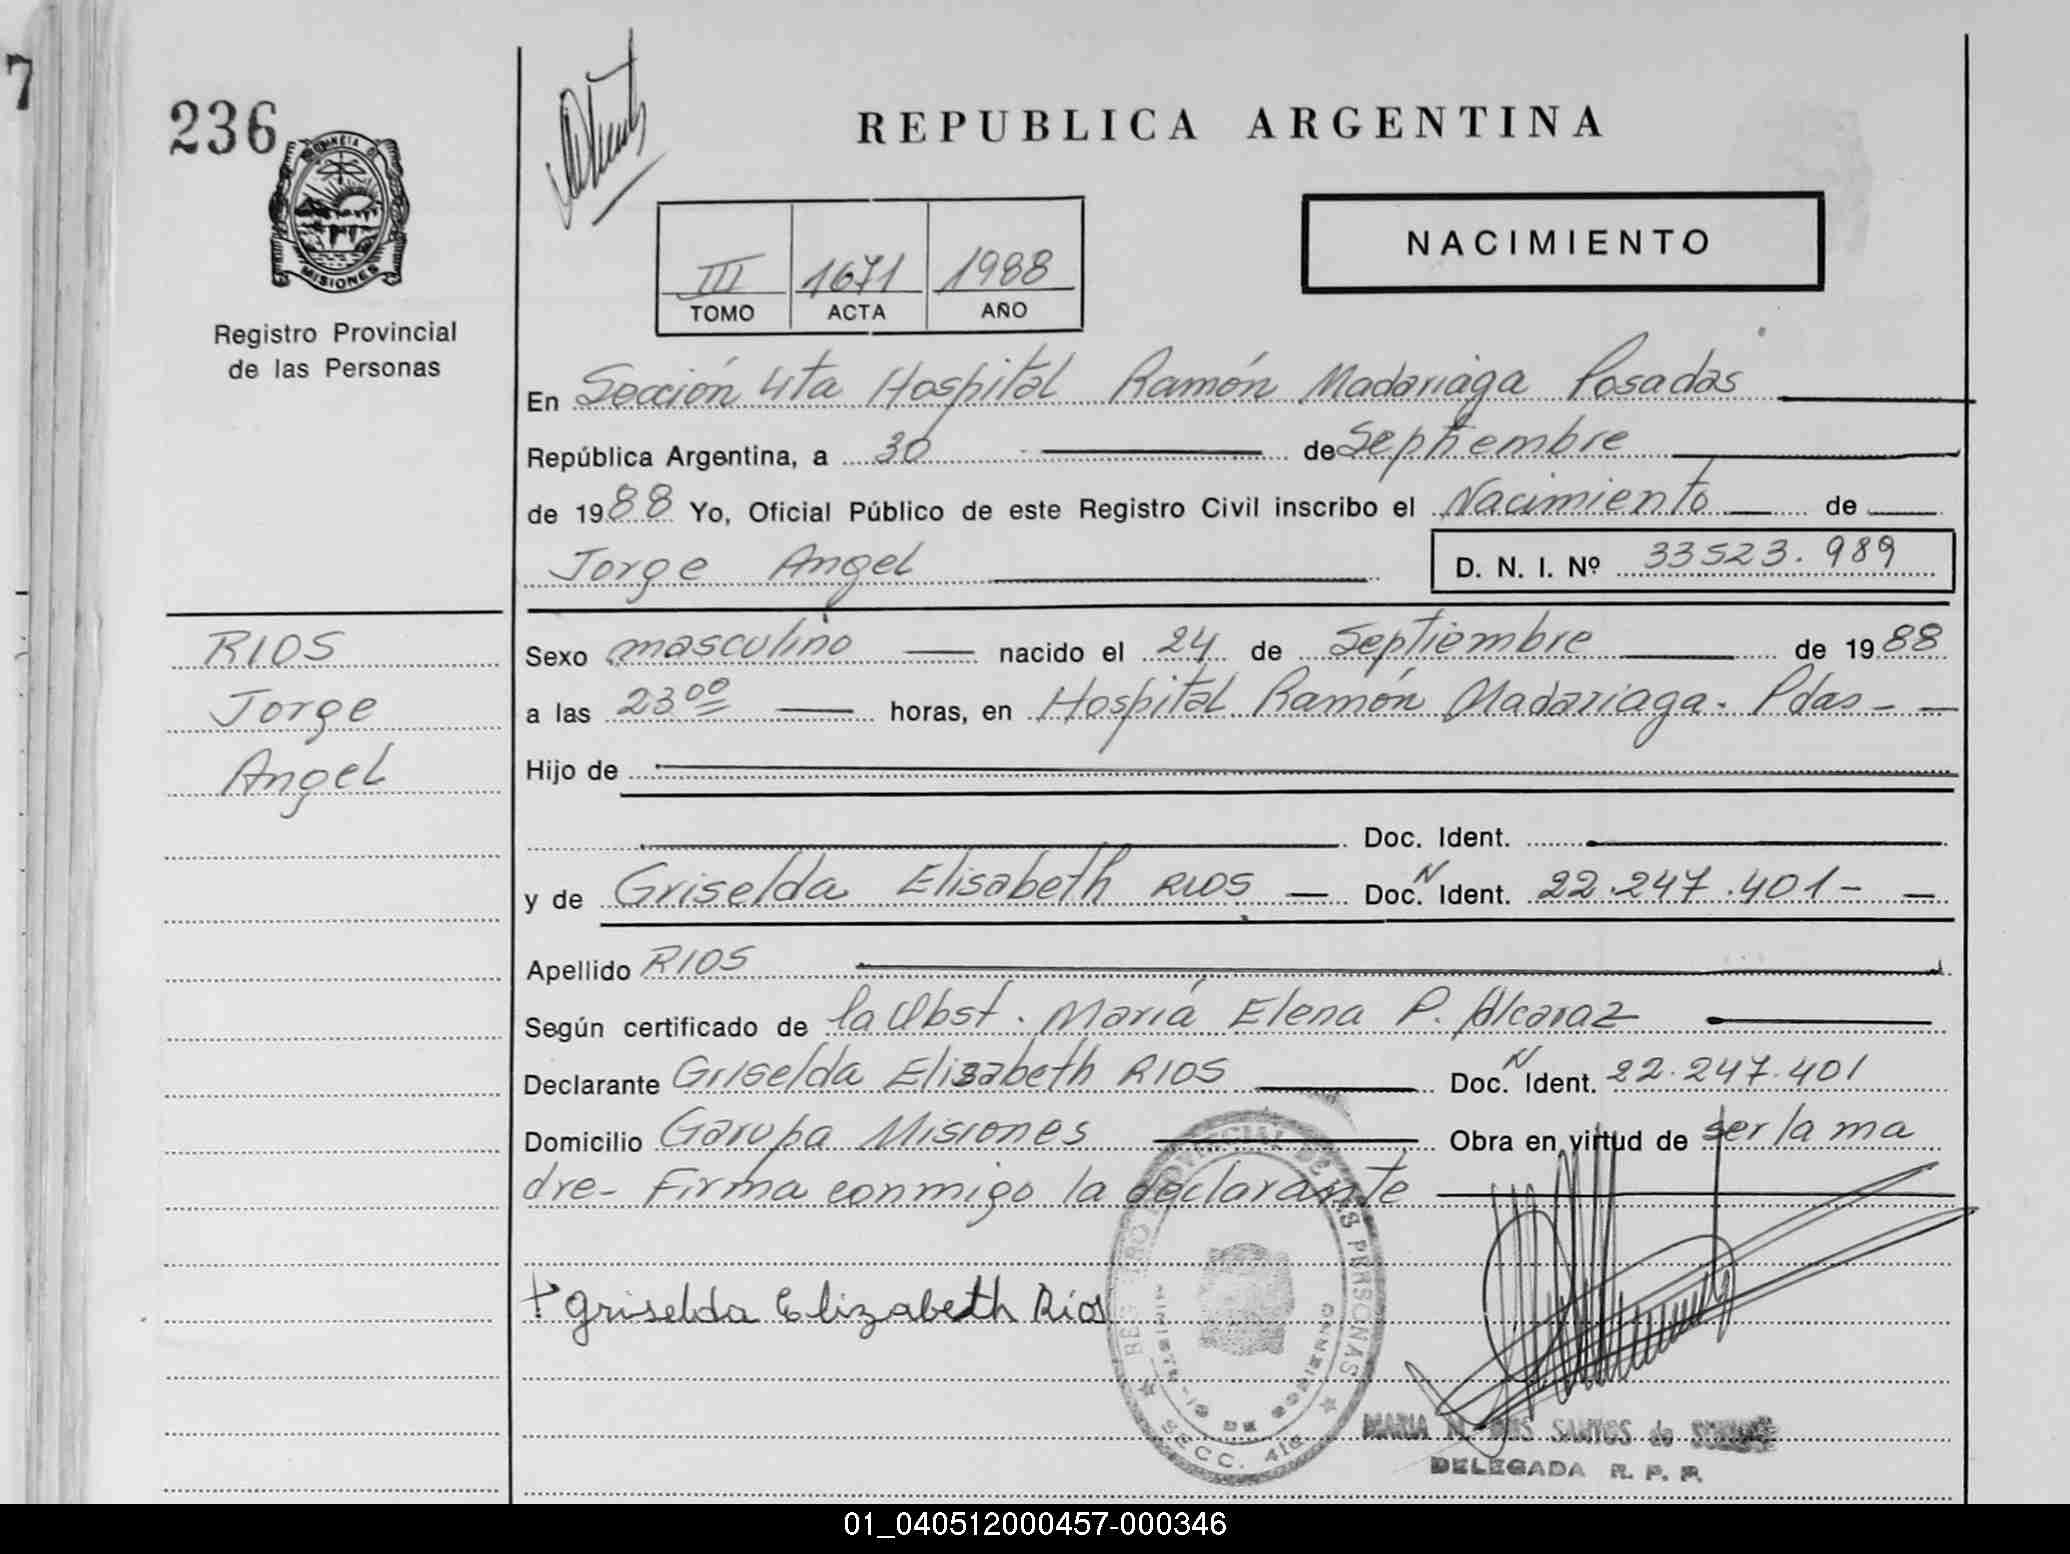 7
236
REPUBLICA ARGENTINA
PROVINCIA D
MISIONES
NACIMIENTO
III 1671 1988
TOMO ACTA AÑO
Registro Provincial
de las Personas
En Sección 4ta Hospital Ramón Madariaga Posadas
República Argentina, a 30 de Septiembre
de 1988 Yo, Oficial Público de este Registro Civil inscribo el Nacimiento de
Jorge Angel D. N. I. Nº 33523.989
RIOS
Jorge
Angel
Sexo masculino nacido el 24 de Septiembre de 1988
a las 23⁰⁰ horas, en Hospital Ramón Madariaga. Pdas -
Hijo de
Doc. Ident.
y de Griselda Elisabeth RIOS Doc. N Ident. 22.247.401-
Apellido RIOS
Según certificado de la Obst. María Elena P. Alcaraz
Declarante Griselda Elisabeth RIOS Doc. N Ident. 22.247.401
Domicilio Garupa Misiones Obra en virtud de ser la ma
dre- Firma conmigo la declarante
Griselda Elizabeth Rios
REGISTRO PROVINCIAL DE LAS PERSONAS
MINISTERIO DE GOBIERNO
SECC. 4ta
MARIA SANTOS de
DELEGADA R. P. P.
01_040512000457-000346